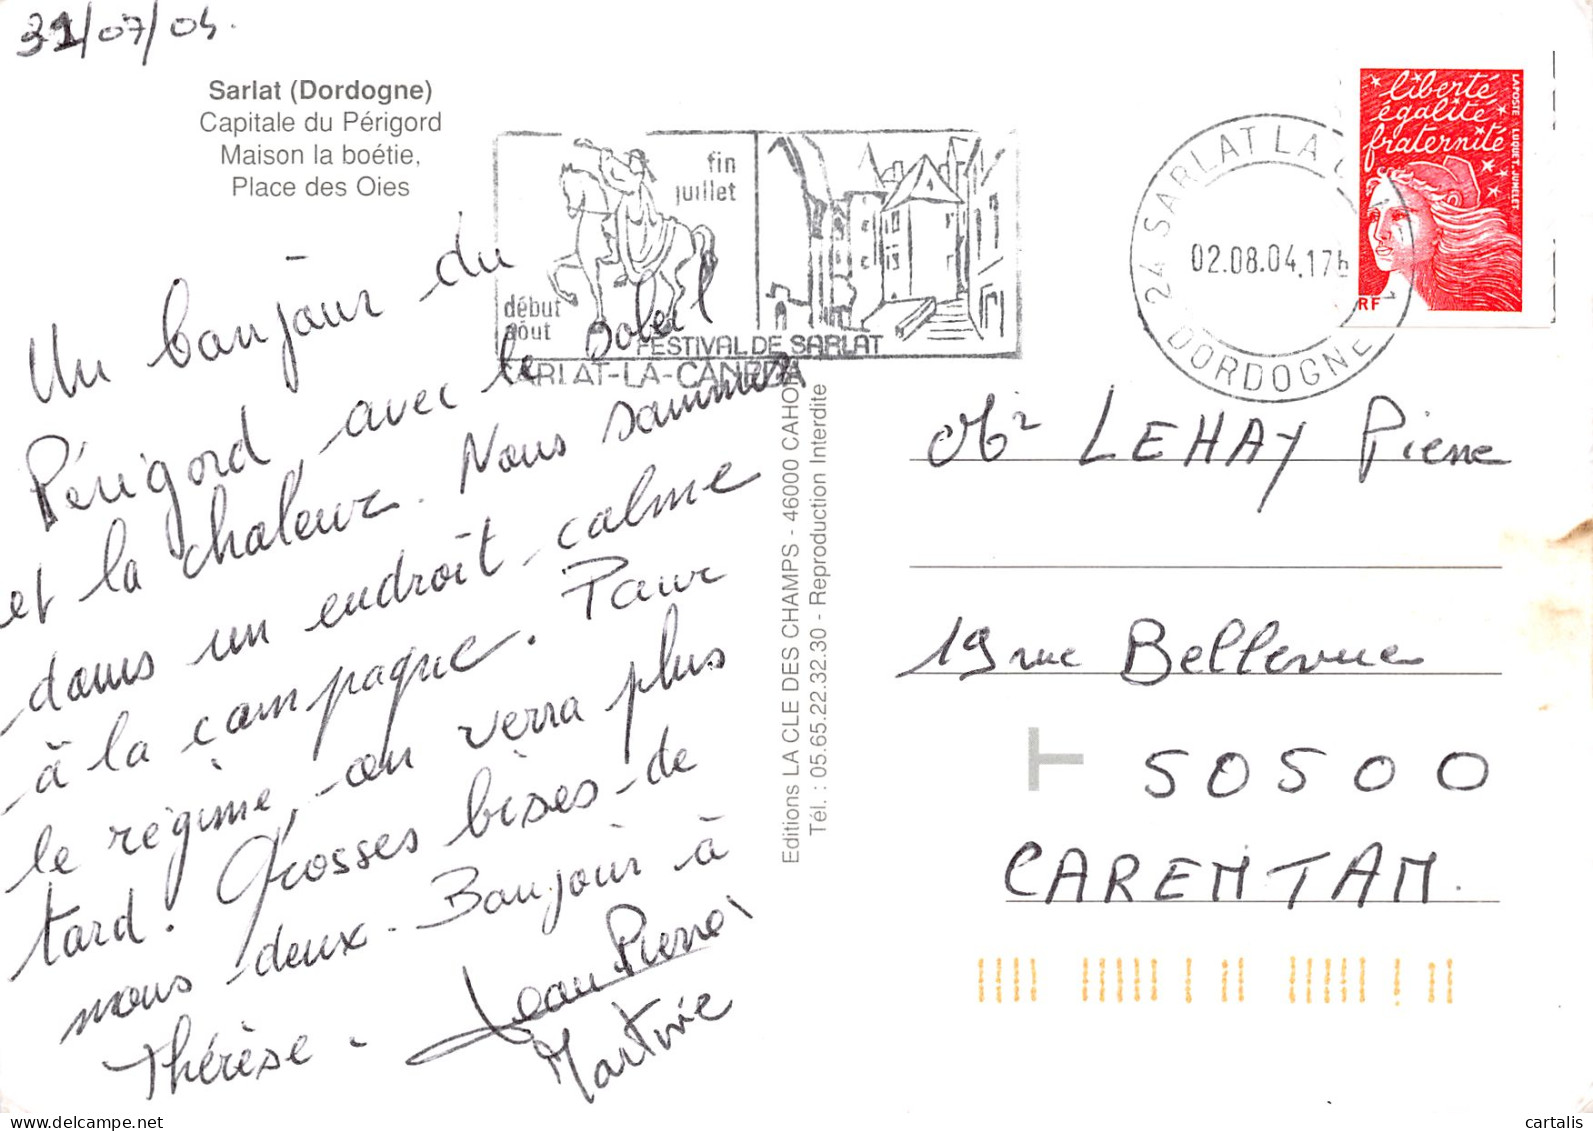 31/07/04.
Sarlat (Dordogne)
Capitale du Périgord
Maison la boétie,
Place des Oies
fin
juillet
début
août
FESTIVAL DE SARLAT
SARLAT-LA-CANEDA
24 SARLAT LA C
02.08.04.17h
DORDOGNE
liberté
égalité
fraternité
LAPOSTE LUQUET-JUMELET
RF
Un bonjour du
Périgord avec le soleil
et la chaleur. Nous sommes
dans un endroit calme
à la campagne. Pour
le régime, on verra plus
tard. Grosses bises de
nous deux. Bonjour à
Thérèse.
Jean Pierre
Martine
Editions LA CLE DES CHAMPS - 46000 CAHORS
Tél. : 05.65.22.32.30 - Reproduction Interdite
Mr LEHAY Pierre
19 rue Bellevue
T 50500
CARENTAN.
delcampe.net
cartalis